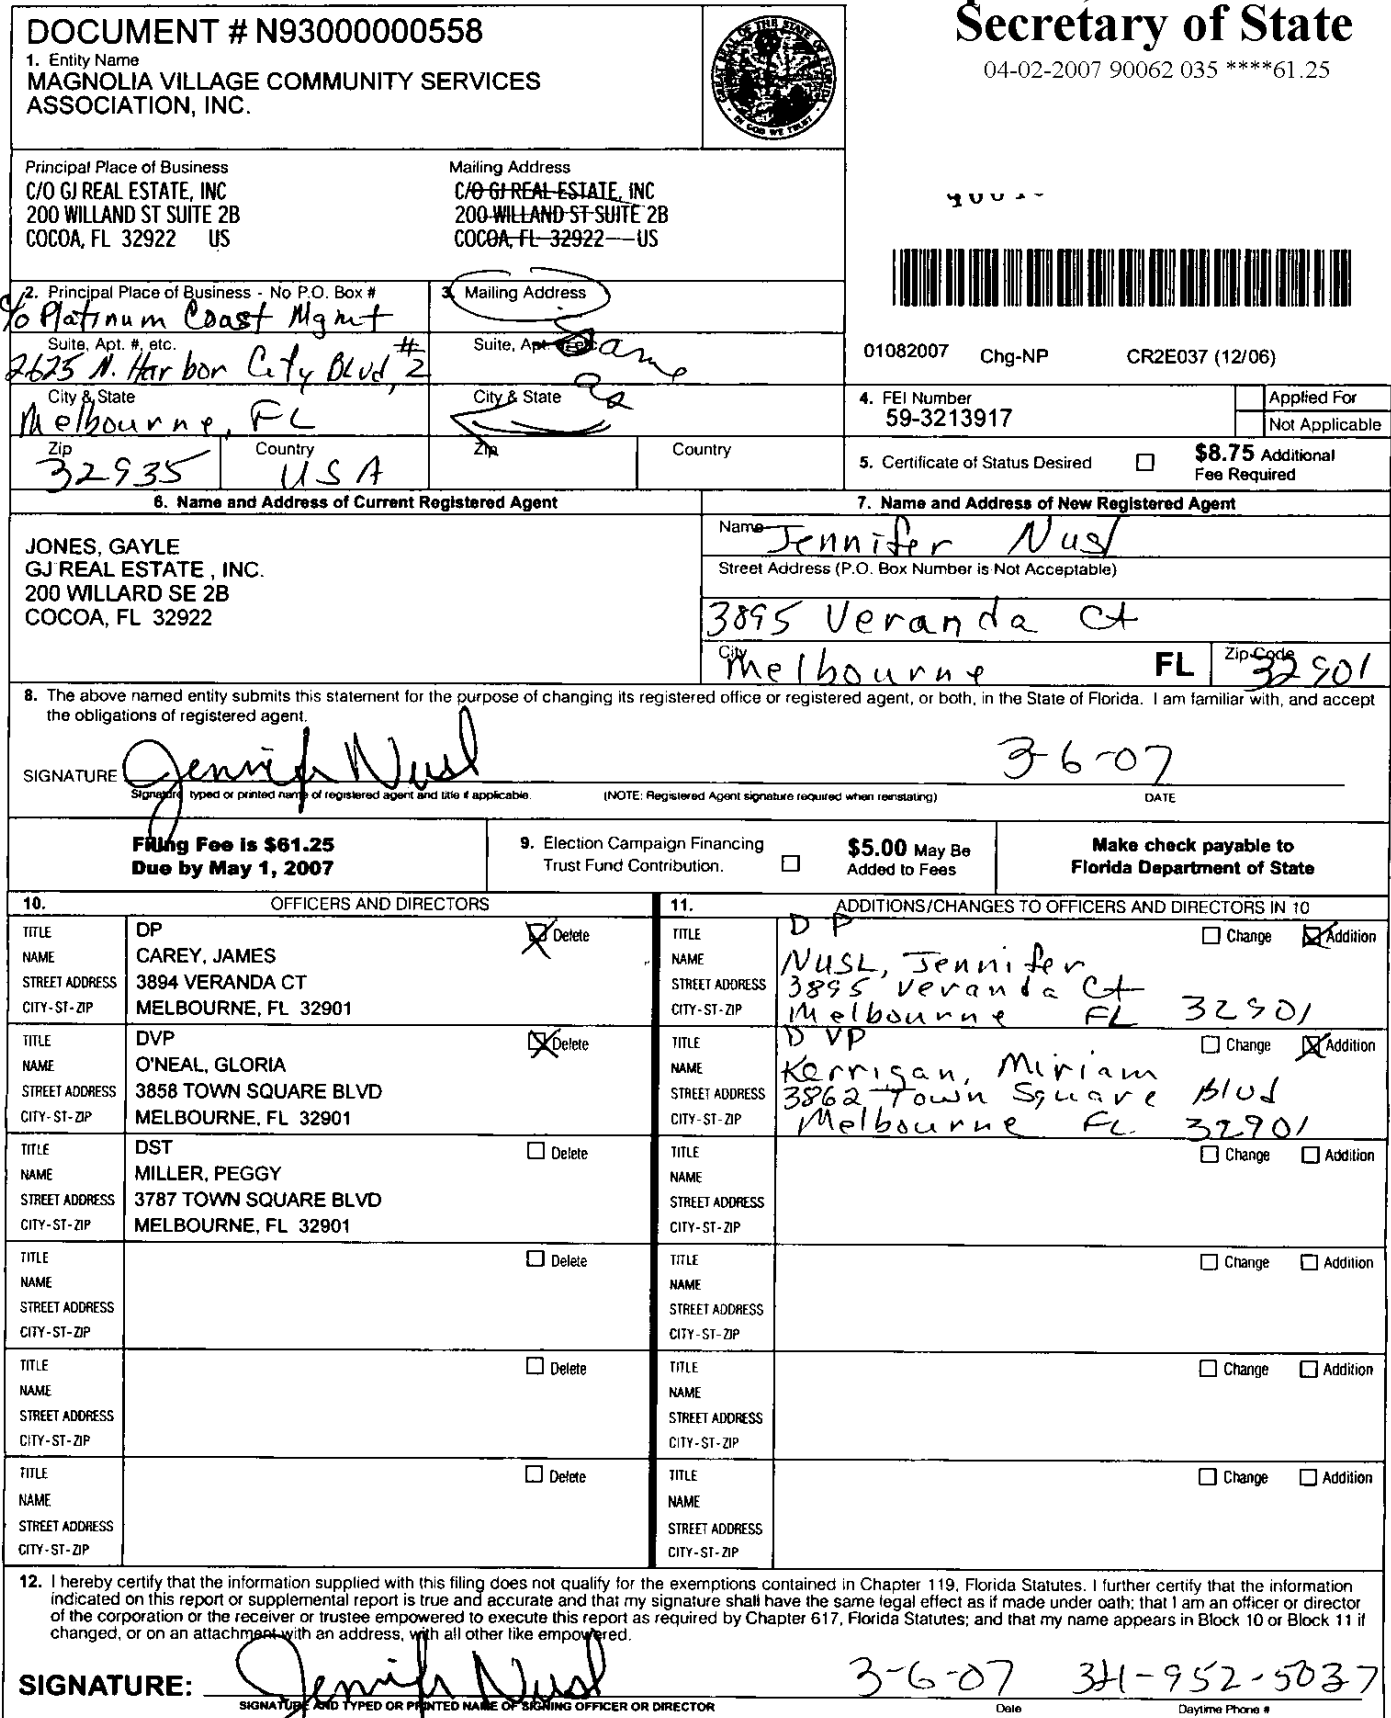 Secretary of State
04-02-2007 90062 035 ****61.25
DOCUMENT # N93000000558
1. Entity Name
MAGNOLIA VILLAGE COMMUNITY SERVICES
ASSOCIATION, INC.
GREAT SEAL OF THE STATE OF FLORIDA
IN GOD WE TRUST
Principal Place of Business
C/O GJ REAL ESTATE, INC
200 WILLAND ST SUITE 2B
COCOA, FL 32922 US
Mailing Address
C/O GJ REAL ESTATE, INC
200 WILLAND ST SUITE 2B
COCOA, FL 32922 US
2. Principal Place of Business - No P.O. Box #
c/o Platinum Coast Mgmt
Suite, Apt. #, etc.
2625 N. Harbor City Blvd, #2
City & State
Melbourne, FL
Zip
32935
Country
USA
3. Mailing Address
Suite, Apt.
Same
City & State
as
Zip
Country
01082007 Chg-NP CR2E037 (12/06)
4. FEI Number
59-3213917
Applied For
Not Applicable
5. Certificate of Status Desired
$8.75 Additional
Fee Required
6. Name and Address of Current Registered Agent
JONES, GAYLE
GJ REAL ESTATE , INC.
200 WILLARD SE 2B
COCOA, FL 32922
7. Name and Address of New Registered Agent
Name Jennifer Nusl
Street Address (P.O. Box Number is Not Acceptable)
3895 Veranda Ct
City Melbourne FL Zip Code 32901
8. The above named entity submits this statement for the purpose of changing its registered office or registered agent, or both, in the State of Florida. I am familiar with, and accept
the obligations of registered agent.
SIGNATURE Jennifer Nusl 3-6-07
Signature, typed or printed name of registered agent and title if applicable. (NOTE: Registered Agent signature required when reinstating) DATE
Filing Fee is $61.25
Due by May 1, 2007
9. Election Campaign Financing
Trust Fund Contribution.
$5.00 May Be
Added to Fees
Make check payable to
Florida Department of State
10. OFFICERS AND DIRECTORS
TITLE DP Delete
NAME CAREY, JAMES
STREET ADDRESS 3894 VERANDA CT
CITY-ST-ZIP MELBOURNE, FL 32901
TITLE DVP Delete
NAME O'NEAL, GLORIA
STREET ADDRESS 3858 TOWN SQUARE BLVD
CITY-ST-ZIP MELBOURNE, FL 32901
TITLE DST Delete
NAME MILLER, PEGGY
STREET ADDRESS 3787 TOWN SQUARE BLVD
CITY-ST-ZIP MELBOURNE, FL 32901
TITLE Delete
NAME
STREET ADDRESS
CITY-ST-ZIP
TITLE Delete
NAME
STREET ADDRESS
CITY-ST-ZIP
TITLE Delete
NAME
STREET ADDRESS
CITY-ST-ZIP
11. ADDITIONS/CHANGES TO OFFICERS AND DIRECTORS IN 10
TITLE DP Change Addition
NAME NUSL, Jennifer
STREET ADDRESS 3895 Veranda Ct
CITY-ST-ZIP Melbourne FL 32901
TITLE DVP Change Addition
NAME Kerrigan, Miriam
STREET ADDRESS 3862 Town Square Blvd
CITY-ST-ZIP Melbourne FL 32901
TITLE Change Addition
NAME
STREET ADDRESS
CITY-ST-ZIP
TITLE Change Addition
NAME
STREET ADDRESS
CITY-ST-ZIP
TITLE Change Addition
NAME
STREET ADDRESS
CITY-ST-ZIP
TITLE Change Addition
NAME
STREET ADDRESS
CITY-ST-ZIP
12. I hereby certify that the information supplied with this filing does not qualify for the exemptions contained in Chapter 119, Florida Statutes. I further certify that the information
indicated on this report or supplemental report is true and accurate and that my signature shall have the same legal effect as if made under oath; that I am an officer or director
of the corporation or the receiver or trustee empowered to execute this report as required by Chapter 617, Florida Statutes; and that my name appears in Block 10 or Block 11 if
changed, or on an attachment with an address, with all other like empowered.
SIGNATURE: Jennifer Nusl 3-6-07 321-952-5037
SIGNATURE AND TYPED OR PRINTED NAME OF SIGNING OFFICER OR DIRECTOR Date Daytime Phone #